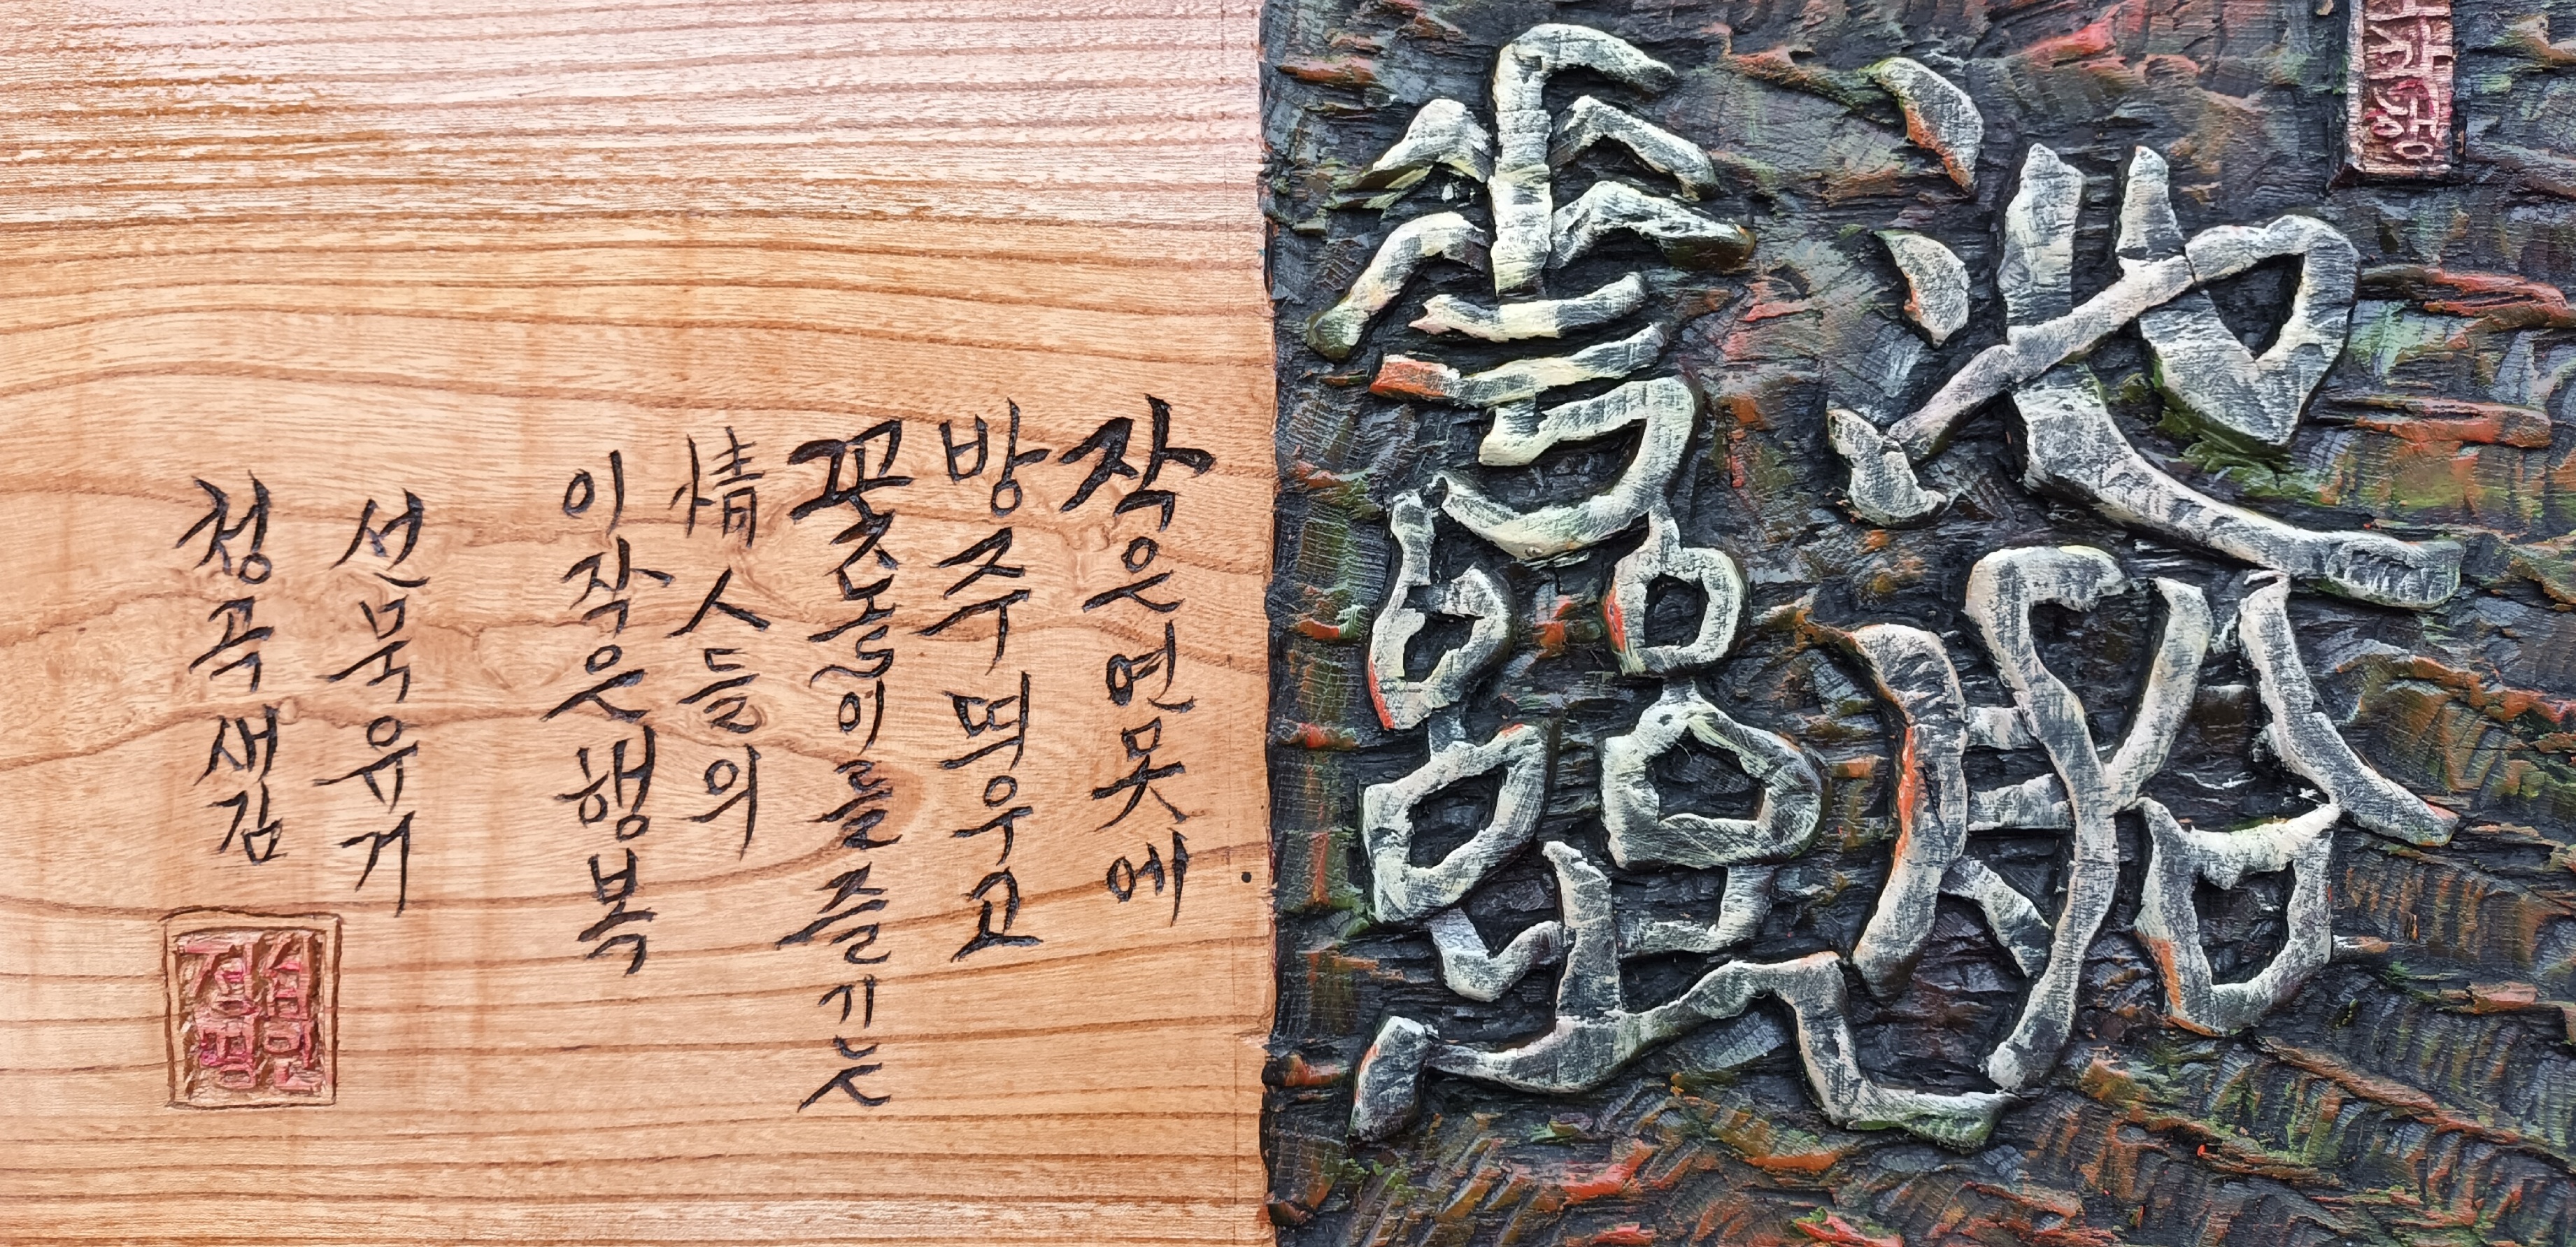 池船
작은 연못에
방주 띄우고
꽃놀이를 즐기는
情人들의
이 작은 행복
선묵유거
청곡 새김